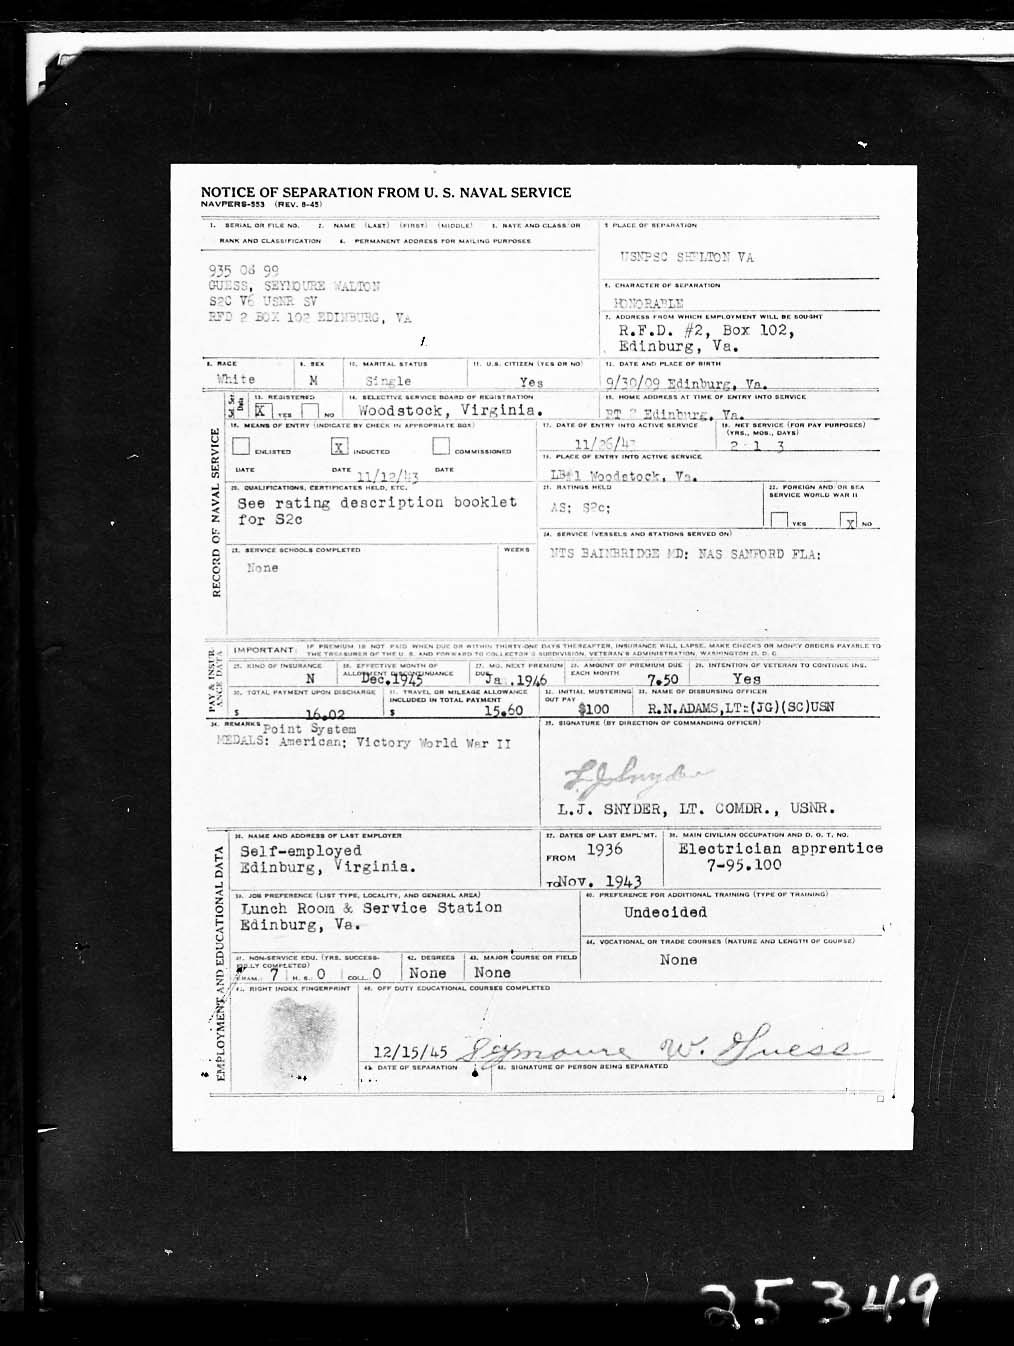 NOTICE OF SEPARATION FROM U. S. NAVAL SERVICE
NAVPERS-553 (REV. 8-45)
1. SERIAL OR FILE NO. 2. NAME (LAST) (FIRST) (MIDDLE) 3. RATE AND CLASS/OR
RANK AND CLASSIFICATION 4. PERMANENT ADDRESS FOR MAILING PURPOSES
935 06 99
GUESS, SEYMOURE WALTON
S2C V6 USNR SV
RFD 2 BOX 102 EDINBURG, VA
5 PLACE OF SEPARATION
USNPSC SHELTON VA
6. CHARACTER OF SEPARATION
HONORABLE
7. ADDRESS FROM WHICH EMPLOYMENT WILL BE SOUGHT
R.F.D. #2, Box 102,
Edinburg, Va.
8. RACE
White
9. SEX
M
10. MARITAL STATUS
Single
11. U.S. CITIZEN (YES OR NO)
Yes
12. DATE AND PLACE OF BIRTH
9/30/09 Edinburg, Va.
Sel. Ser. Data
13. REGISTERED
X YES NO
14. SELECTIVE SERVICE BOARD OF REGISTRATION
Woodstock, Virginia.
15. HOME ADDRESS AT TIME OF ENTRY INTO SERVICE
RT 2 Edinburg, Va.
RECORD OF NAVAL SERVICE
16. MEANS OF ENTRY (INDICATE BY CHECK IN APPROPRIATE BOX)
ENLISTED X INDUCTED COMMISSIONED
DATE DATE 11/12/43 DATE
17. DATE OF ENTRY INTO ACTIVE SERVICE
11/26/43
18. NET SERVICE (FOR PAY PURPOSES)
(YRS., MOS., DAYS)
2 1 3
19. PLACE OF ENTRY INTO ACTIVE SERVICE
LB#1 Woodstock, Va.
20. QUALIFICATIONS, CERTIFICATES HELD, ETC.
See rating description booklet
for S2c
21. RATINGS HELD
AS; S2c;
22. FOREIGN AND/OR SEA
SERVICE WORLD WAR II
YES X NO
23. SERVICE SCHOOLS COMPLETED WEEKS
None
24. SERVICE (VESSELS AND STATIONS SERVED ON)
NTS BAINBRIDGE MD; NAS SANFORD FLA;
PAY & INSURANCE DATA
IMPORTANT: IF PREMIUM IS NOT PAID WHEN DUE OR WITHIN THIRTY-ONE DAYS THEREAFTER, INSURANCE WILL LAPSE. MAKE CHECKS OR MONEY ORDERS PAYABLE TO
THE TREASURER OF THE U. S. AND FORWARD TO COLLECTOR'S SUBDIVISION, VETERAN'S ADMINISTRATION, WASHINGTON 25, D. C.
25. KIND OF INSURANCE
N
26. EFFECTIVE MONTH OF
ALLOTMENT DISCONTINUANCE
Dec. 1945
27. MO. NEXT PREMIUM
DUE
Jan. 1946
28. AMOUNT OF PREMIUM DUE
EACH MONTH
7.50
29. INTENTION OF VETERAN TO CONTINUE INS.
Yes
30. TOTAL PAYMENT UPON DISCHARGE
$ 16.02
31. TRAVEL OR MILEAGE ALLOWANCE
INCLUDED IN TOTAL PAYMENT
$ 15.60
32. INITIAL MUSTERING
OUT PAY
$100
33. NAME OF DISBURSING OFFICER
R.N.ADAMS,LT:(JG)(SC)USN
34. REMARKS Point System
MEDALS: American; Victory World War II
35. SIGNATURE (BY DIRECTION OF COMMANDING OFFICER)
L J Snyder
L.J. SNYDER, LT. COMDR., USNR.
EMPLOYMENT AND EDUCATIONAL DATA
36. NAME AND ADDRESS OF LAST EMPLOYER
Self-employed
Edinburg, Virginia.
37. DATES OF LAST EMPL'MT.
FROM 1936
TO Nov. 1943
38. MAIN CIVILIAN OCCUPATION AND D. O. T. NO.
Electrician apprentice
7-95.100
39. JOB PREFERENCE (LIST TYPE, LOCALITY, AND GENERAL AREA)
Lunch Room & Service Station
Edinburg, Va.
40. PREFERENCE FOR ADDITIONAL TRAINING (TYPE OF TRAINING)
Undecided
41. NON-SERVICE EDU. (YRS. SUCCESS-
FULLY COMPLETED)
GRAM.: 7 H. S.: 0 COLL.: 0
42. DEGREES
None
43. MAJOR COURSE OR FIELD
None
44. VOCATIONAL OR TRADE COURSES (NATURE AND LENGTH OF COURSE)
None
RIGHT INDEX FINGERPRINT
46. OFF DUTY EDUCATIONAL COURSES COMPLETED
12/15/45 Seymoure W. Guess
DATE OF SEPARATION
48. SIGNATURE OF PERSON BEING SEPARATED
25349